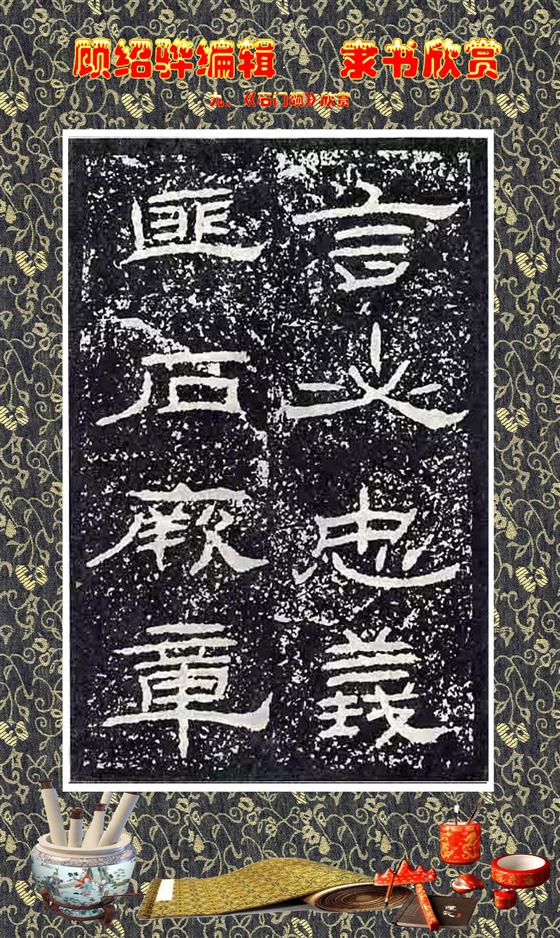 顾绍骅编辑 隶书欣赏
九、《石门颂》欣赏
言必忠義
匪石厥章